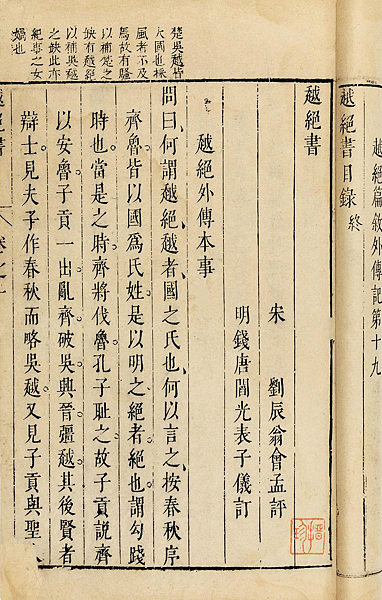 越絕篇敘外傳記第十九
越絕書目錄終
越絕書
宋 劉辰翁會孟評
明錢唐閻光表子儀訂
越絕外傳本事
問曰何謂越絕越者國之氏也何以言之按春秋序
齊魯皆以國爲氏姓是以明之絕者絕也謂勾踐
時也當是之時齊將伐魯孔子耻之故子貢說齊
以安魯子貢一出亂齊破吳興晉彊越其後賢者
辯士見夫子作春秋而略吳越又見子貢與聖人
楚吳越皆
大國也採
風者不及
焉故有騷
以補楚之
缺有越絕
以補吳越
之缺此亦
紀事之女
媧也
越絕書 卷之一